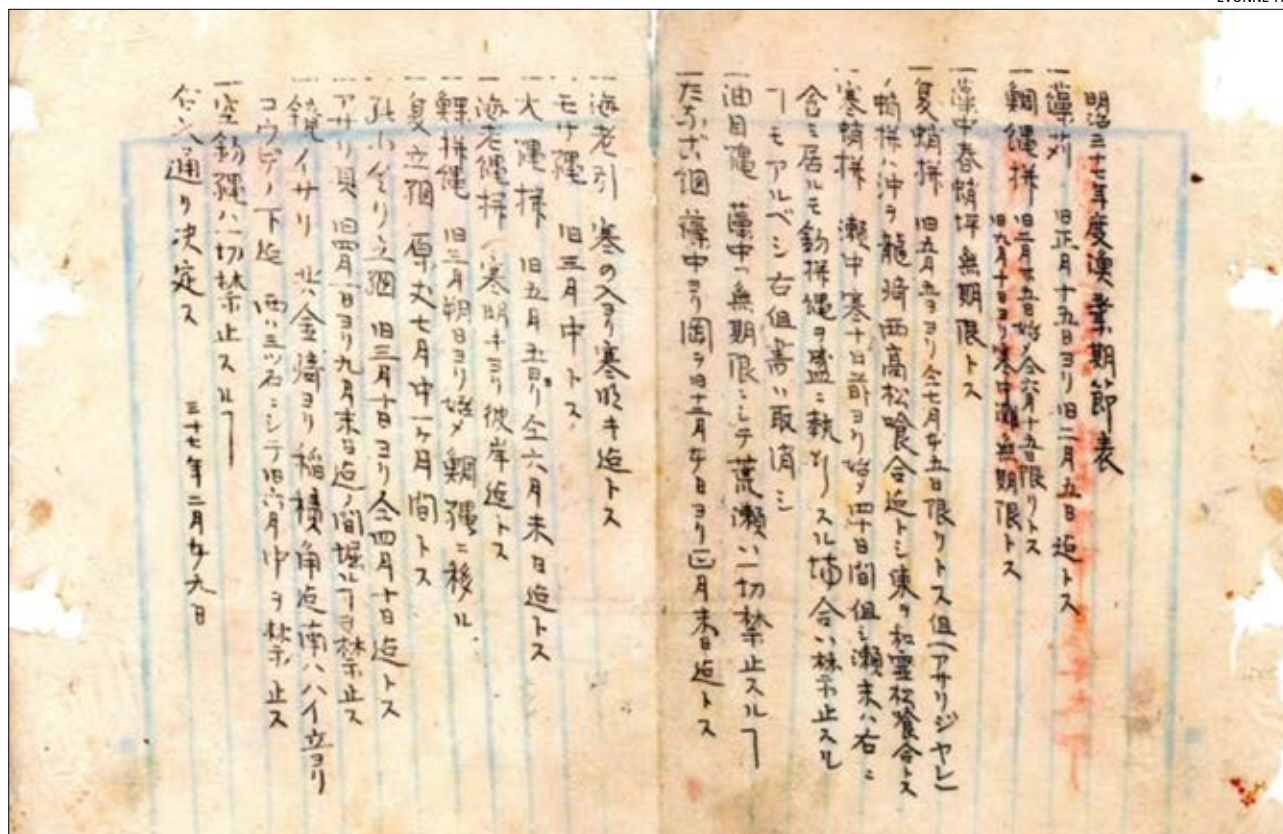 明治三十七年度漁業期節表
一藻刈 旧正月十五日ヨリ旧二月五日迄トス
一鯛縄拵 旧三月廿五日始仝六月十五日限リトス
旧九月十日ヨリ寒中迄無期限トス
一藻中春蛸拵無期限トス
一夏蛸拵 旧五月五日ヨリ仝七月廿五日限リトス但(アサリジヤレ)
蛸拵ハ沖ヲ龍﨑西高松喰合迄トシ東ヲ和霊松喰合トス
一寒蛸拵 瀬中寒十日前ヨリ始メ四十日間但シ瀬末ハ右ニ
含ミ居ルモ釣拵縄ヲ盛ニ執リスル場合ハ禁止スル
ヿモアルベシ右但書ハ取消シ
一油目縄 藻中ハ無期限ニシテ荒瀬ハ一切禁止スルヿ
網 藻中ヨリ岡ラ旧十二月廿日ヨリ正月末日迄トス
一海老引 寒の入ヨリ寒明キ迄トス
一モサ縄 旧三月中トス
一大縄拵 旧五月五日ヨリ仝六月末日迄トス
一海老縄拵 寒明キヨリ彼岸迄トス
一鯛拵縄 旧三月朔日ヨリ始メ鯛縄ニ移ル
一夏立網 原丈七月中一ヶ月間トス
立網 旧三月十日ヨリ仝四月十日迄トス
一アサリ貝 旧四月一日ヨリ九月末日迄ノ間堀ルヿヲ禁止ス
一鏡イサリ 北ハ金﨑ヨリ稲積角迄南ハハイ立ヨリ
コウデノ下迄 西ハ三ツ石ニシテ旧六月中ヲ禁止ス
一空釣縄ハ一切禁止スルヿ
通リ決定ス 三十七年二月廿九日